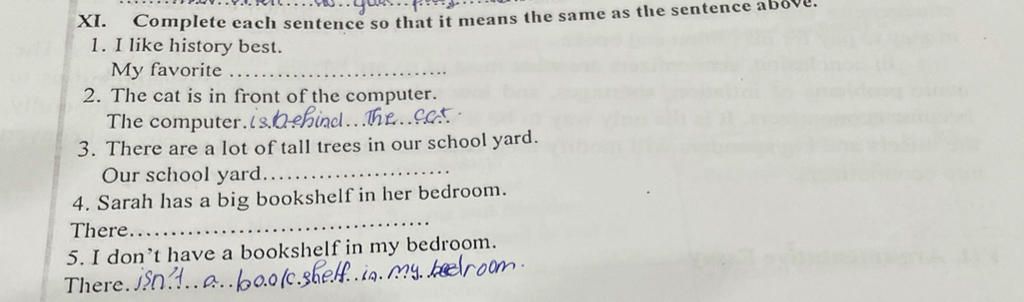 XI. Complete each sentence so that it means the same as the sentence above.
1. I like history best.
My favorite ..............................
2. The cat is in front of the computer.
The computer. is behind...The..cat.
3. There are a lot of tall trees in our school yard.
Our school yard........................
4. Sarah has a big bookshelf in her bedroom.
There.......................................
5. I don't have a bookshelf in my bedroom.
There. isn't..a..bookshelf..in.my.bedroom.